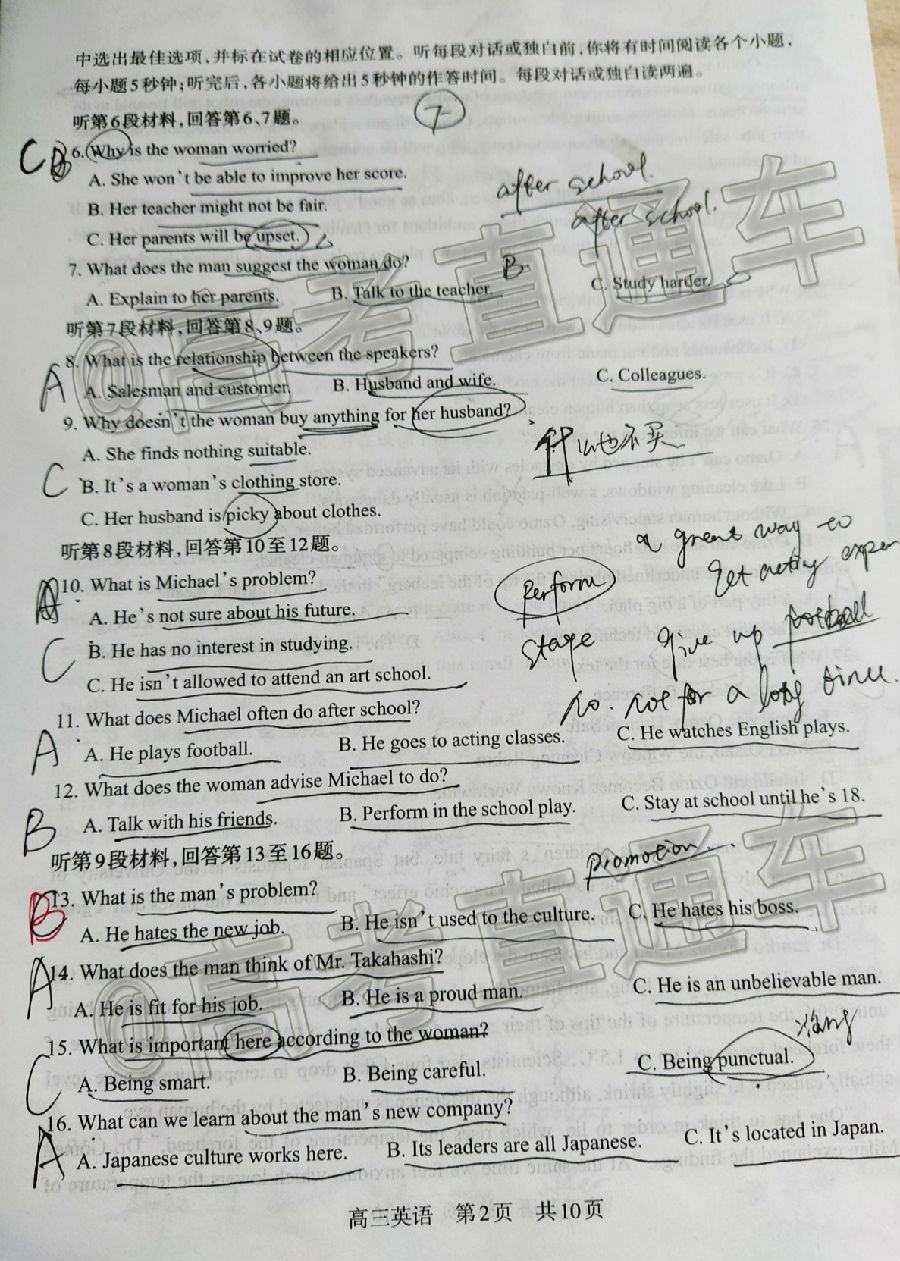 中选出最佳选项,并标在试卷的相应位置。听每段对话或独白前,你将有时间阅读各个小题,
每小题5秒钟;听完后,各小题将给出5秒钟的作答时间。每段对话或独白读两遍。
听第6段材料,回答第6、7题。
7
C B 6. Why is the woman worried?
A. She won't be able to improve her score.
B. Her teacher might not be fair.
C. Her parents will be upset.
after school.
after school.
7. What does the man suggest the woman do?
B.
A. Explain to her parents. B. Talk to the teacher. C. Study harder.
听第7段材料,回答第8、9题。
A 8. What is the relationship between the speakers?
A. Salesman and customer. B. Husband and wife. C. Colleagues.
9. Why doesn't the woman buy anything for her husband?
什么也不买
A. She finds nothing suitable.
C B. It's a woman's clothing store.
C. Her husband is picky about clothes.
听第8段材料,回答第10至12题。
a great way to
A 10. What is Michael's problem?
Perform
A. He's not sure about his future.
stage
give up football
C B. He has no interest in studying.
C. He isn't allowed to attend an art school.
no. not for a long time.
11. What does Michael often do after school?
A A. He plays football. B. He goes to acting classes. C. He watches English plays.
12. What does the woman advise Michael to do?
B A. Talk with his friends. B. Perform in the school play. C. Stay at school until he's 18.
听第9段材料,回答第13至16题。
promotion...
B 13. What is the man's problem?
A. He hates the new job. B. He isn't used to the culture. C. He hates his boss.
A 14. What does the man think of Mr. Takahashi?
A. He is fit for his job. B. He is a proud man. C. He is an unbelievable man.
15. What is important here according to the woman?
C A. Being smart. B. Being careful. C. Being punctual.
16. What can we learn about the man's new company?
A A. Japanese culture works here. B. Its leaders are all Japanese. C. It's located in Japan.
高三英语 第2页 共10页
@高考直通车
@高考直通车